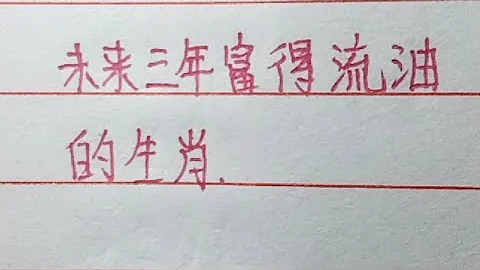 未来三年富得流油
的生肖.